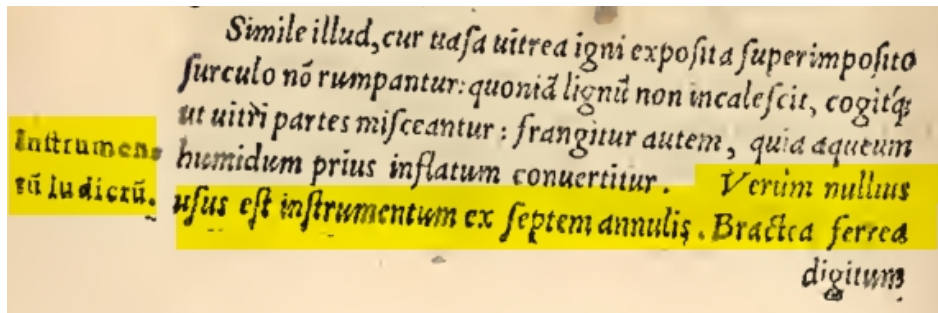 Simile illud, cur uasa uitrea igni exposita superimposito
surculo nõ rumpantur: quoniã lignũ non incalescit, cogitq́;
ut uitri partes misceantur: frangitur autem, quia aqueum
humidum prius inflatum conuertitur. Verùm nullius
usus est instrumentum ex septem annulis. Bractea ferrea
digitum
Instrumen⸗
tũ ludicrũ.